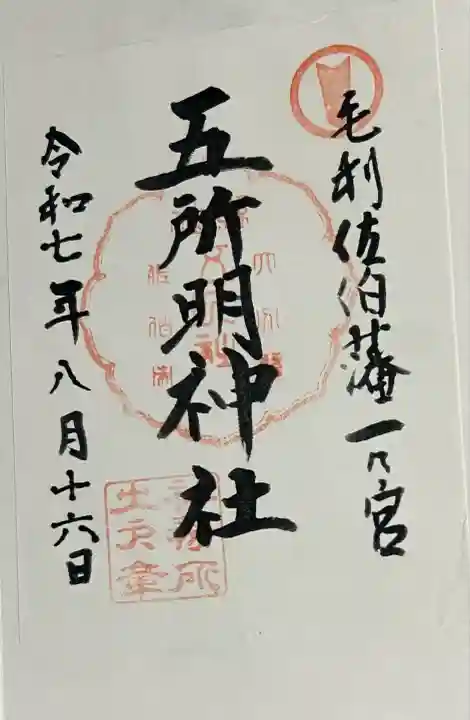 毛利佐伯藩一乃宮
五所明神社
令和七年八月十六日